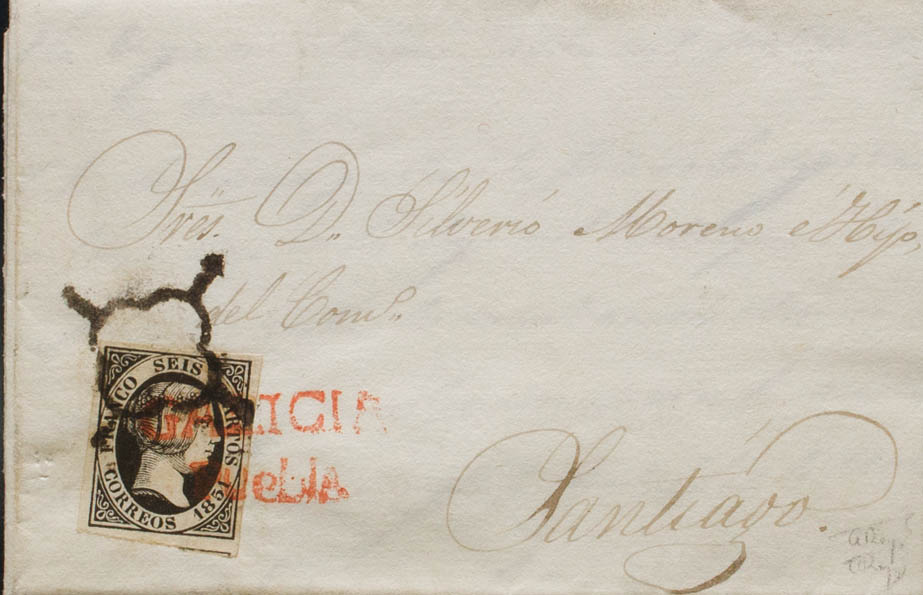 Sres. D. Silverio Moreno é Hijo
del Comº.
FRANCO SEIS
CORREOS 1851
GALICIA
Puebla
Santiago.